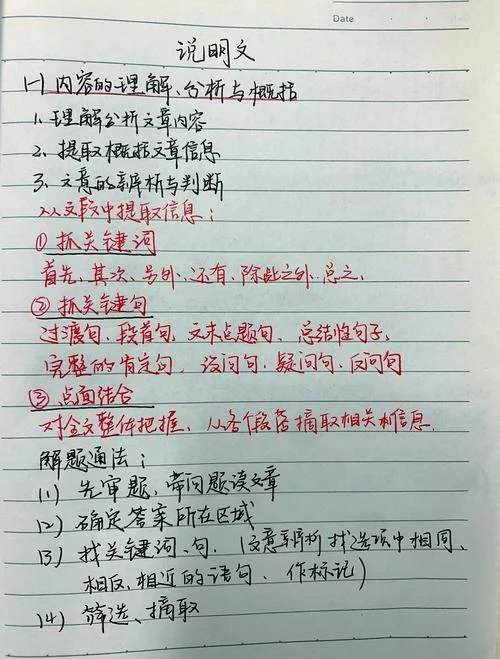 Date
说明文
(一) 内容的理解、分析与概括
1. 理解分析文章内容
2. 提取概括文章信息
3. 文意的辨析与判断
从文段中提取信息：
① 抓关键词
首先、其次、另外、还有、除此之外、总之、
② 抓关键句
过渡句、段首句、文末点题句、总结性句子、
完整的肯定句、设问句、疑问句、反问句
③ 点面结合
对全文整体把握、从各段落摘取相关信息.
解题通法：
(1) 先审题，带问题读文章
(2) 确定答案所在区域
(3) 找关键词、句、(文意辨析找选项中相同、
相反、相近的语句、作标记)
(4) 筛选、摘取